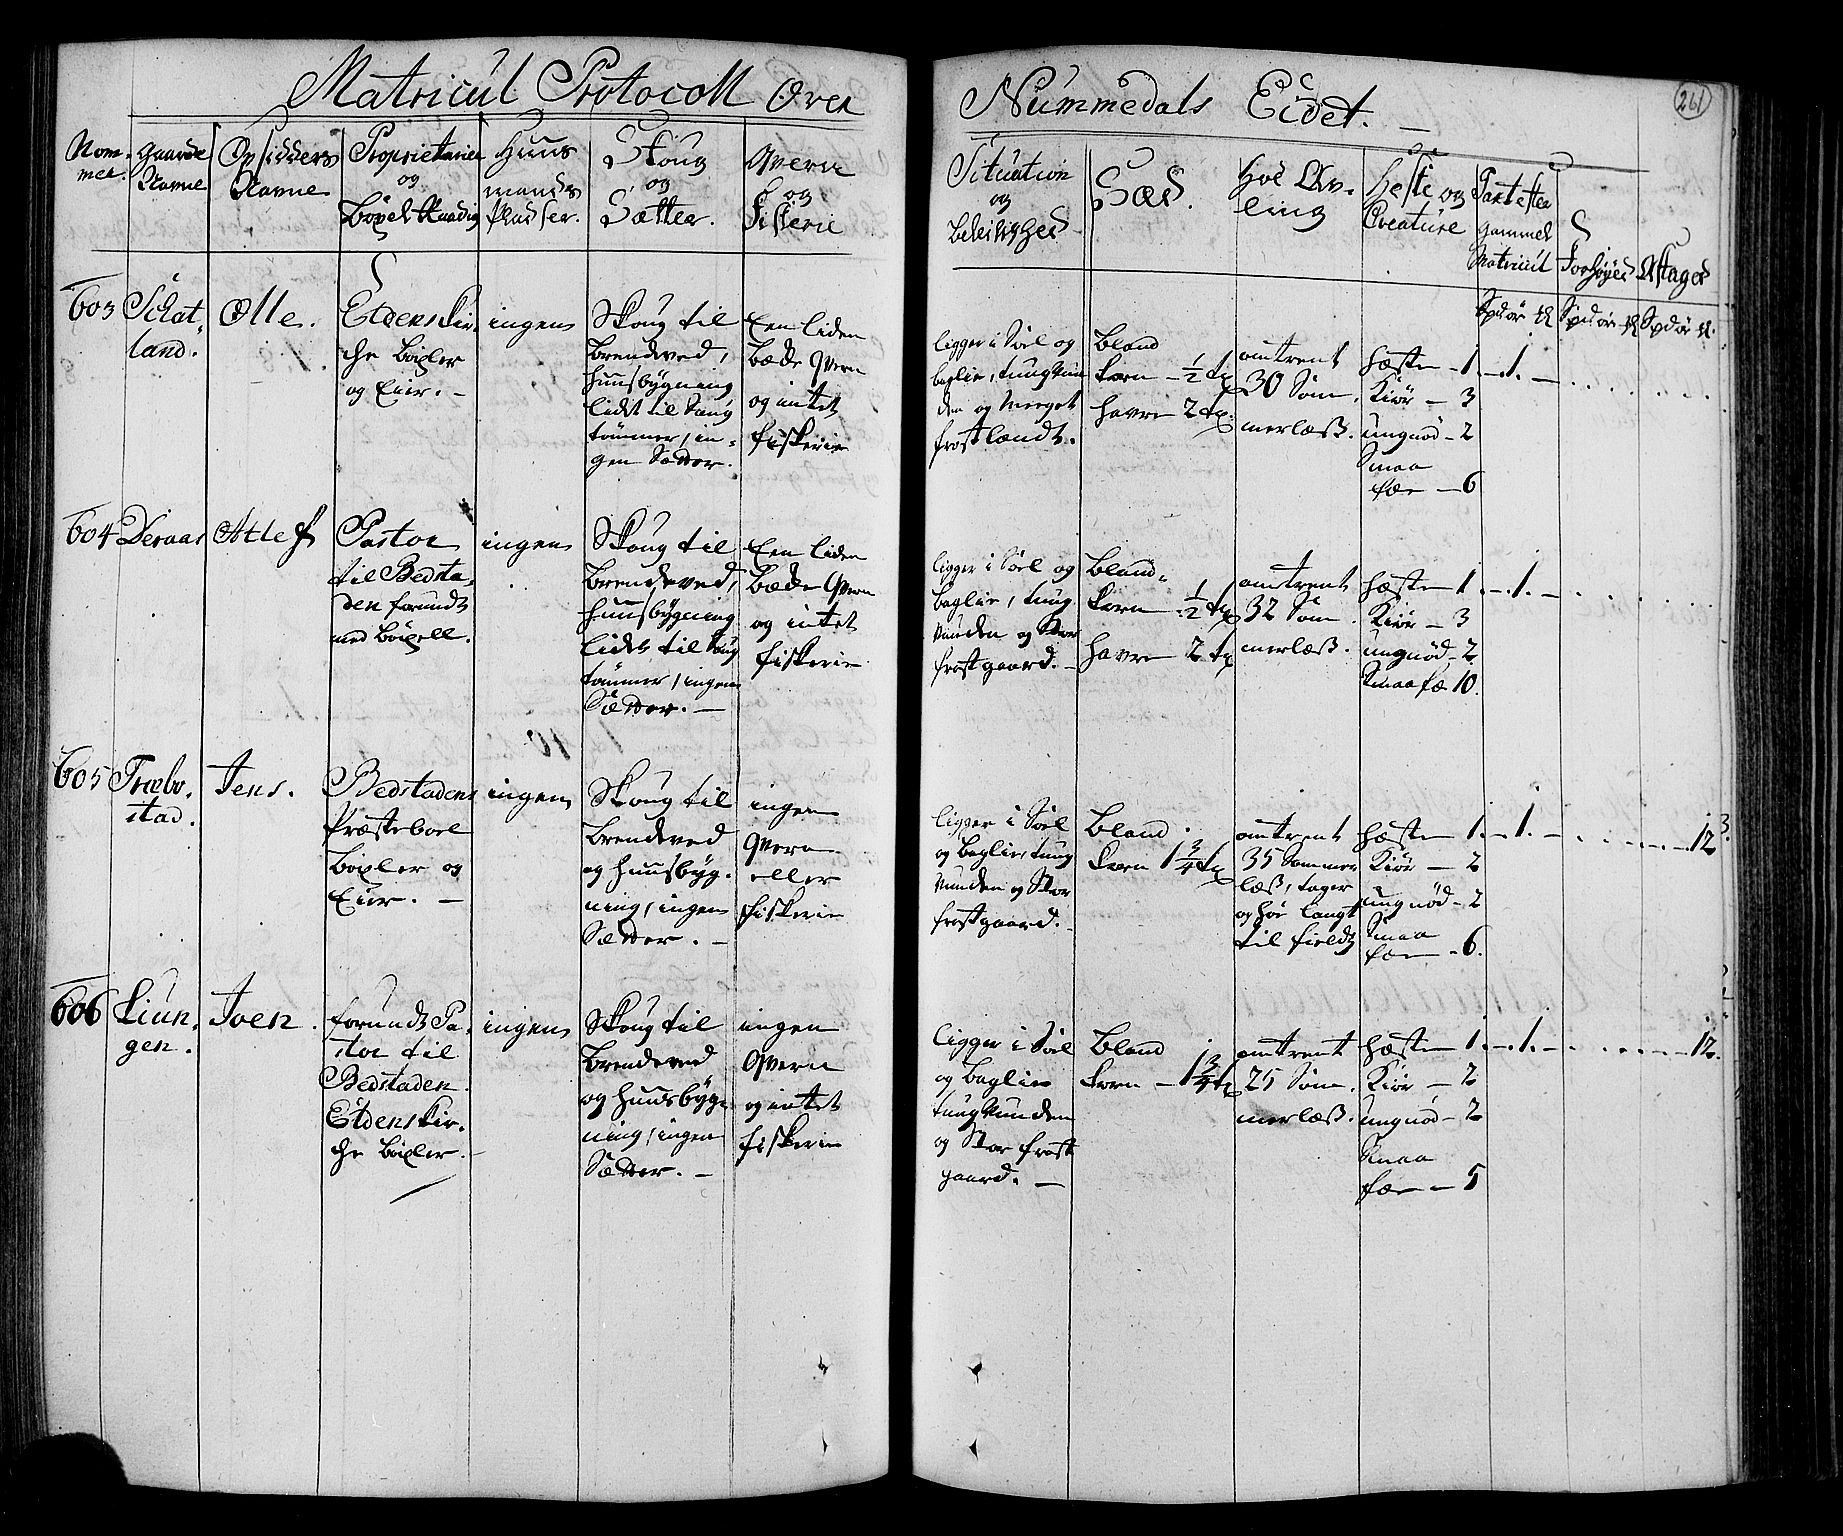 Matricul Protocoll Over Nummedals Eidet.
261
Nom-
mer.
Gaarde
Navne
Opsidders
Navne
Proprietarier
og
Böxel Raadig
Huus
mands
Pladser.
Skoug
og
Sætter.
Qvern
og
Fiskerie
Situation
og
Beleilighed
Sæd.
Höe Av-
ling
Heste og
Creature
Taxt efter
gammel
Matricul
Forhöyed
Aftaged
Spd ort ß
Spd ort ß
Spd ort ß.
603
Sclat-
land.
Olle.
Eldens Kir-
che böxler
og Eier. -
ingen
Skoug til
brendeved,
huusbÿgning
lidet til Saug
tömmer, in-
gen Sætter.
Een liden
bæcke Qvern
og intet
fiskerie
ligger i Soel og
baglie, tungvun
den og meeget
frostlændt.
bland
korn - ½ tø
havre 2 tø.
omtrent
30 Som-
merlæß.
hæste - 1.
Kiör - 3
ungnöd - 2
Smaa
fæe - 6
- 1. -
604
Deraas
Atlef
Pastor
til Bedsta-
den forundt
med böxell.
ingen
Skoug til
brendeved,
huusbÿgning
lidet til Saug
tömmer, ingen
Sætter. -
Een liden
bæcke Qvern
og intet
fiskerie
ligger i Soel og
baglie, tung-
vunden og Stor
frostgaard. -
bland-
korn ½ tø
havre 2 tø
omtrent
32 Som-
merlæß.
hæste 1.
Kiör - 3
ungnöd - 2.
Smaafæ 10.
- 1. -
605
Træbo-
stad.
Jens.
Bedstadens
Præsteboel
böxler og
Eier. -
ingen
Skoug til
brendeved
og huusbÿg-
ning, ingen
Sætter. -
ingen
Qvern
eller
fiskerie
ligger i Soel
og baglie, tung
vunden og Stor
frostgaard. -
bland
korn 1¾ tø
omtrent
35 Sommer
læß, tager
og höe langt
til fields
hæste 1.
Kiör - 2
ungnöd - 2
Smaa
fæe - 6.
- 1. -
12
606
Liun-
gen.
Joen.
forundt Pa-
stor til
Bedstaden.
Eldens Kir-
che böxler. -
ingen
Skoug til
brendeved
og huusbÿg-
ning, ingen
Sætter. -
ingen
Qvern
og intet
fiskerie
ligger i Soel
og baglie
tungvunden
og Stor frost
gaard. -
bland
korn - 1¾ tø
omtrent
25 Som-
merlæß.
hæste 1.
Kiör - 2
ungnöd - 2
Smaa
fæe - 5
- 1. -
12.